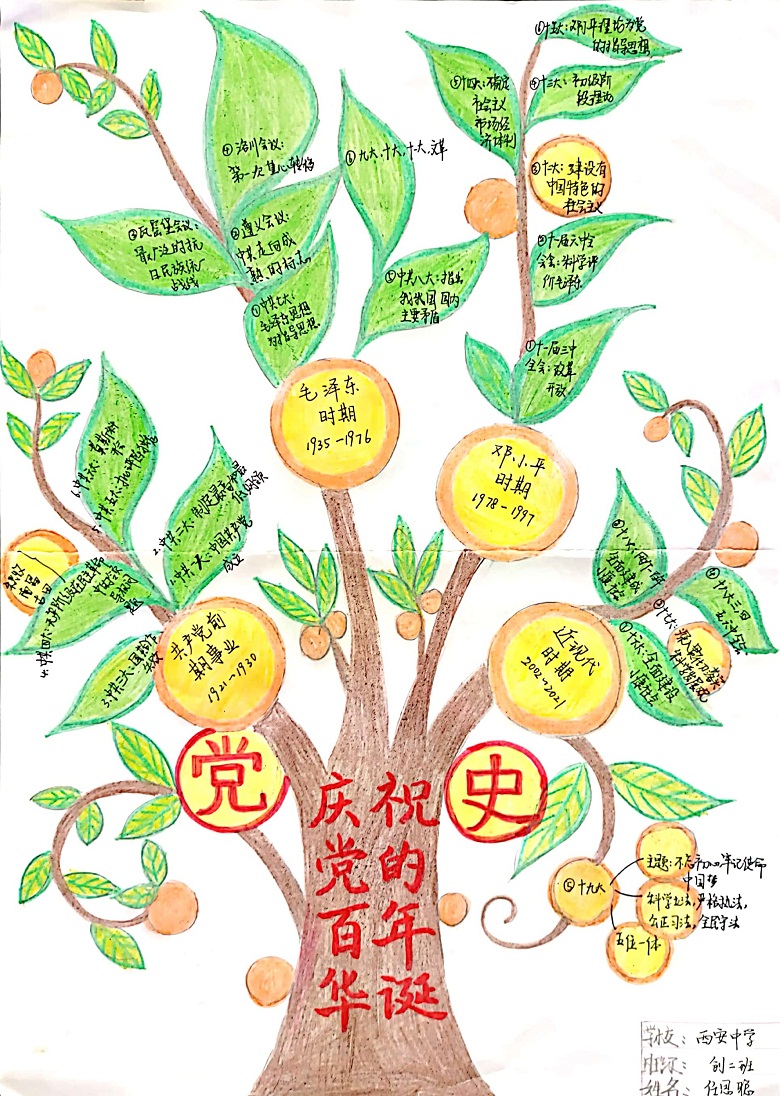 ①十五大：邓小平理论为党
的指导思想
⑤十四大：确定
社会主义
市场经
济体制
④十三大：初级阶
段理论
③十二大：建设有
中国特色的
社会主义
②十一届六中全
会会：科学评
价毛泽东
①十一届三中
全会：改革
开放
④洛川会议：
第一次重心转移
③瓦窑堡会议：
最广泛的抗
日民族统一
战线
②遵义会议：
中共走向成
熟的标志
①中共七大：
毛泽东思想
为指导思想
⑥九大，十大，十一大，文革
⑤中共八大：指出
我国国内
主要矛盾
毛泽东
时期
1935-1976
邓小平
时期
1978-1997
6.中共六大：莫斯科
5.中共五大：
2.中共二大：制定最高和最
低纲领
中共一大：中国共产党
成立
3.中共三大：国共合作
4.中共四大：无产阶级在民主革命
共产党前
期事业
1921-1930
近现代
时期
2002-2021
①十六大：全面建设
小康社会
②十七大：深入贯彻落实
科学发展观
③十八大：
全面建成
小康社会
④十八大三四
五六中全会
党
史
庆祝
党的
百年
华诞
⑤十九大
主题：不忘初心牢记使命
中国梦
科学立法，严格执法，
公正司法，全民守法
五位一体
学校：西安中学
班级：创二班
姓名：任思聪